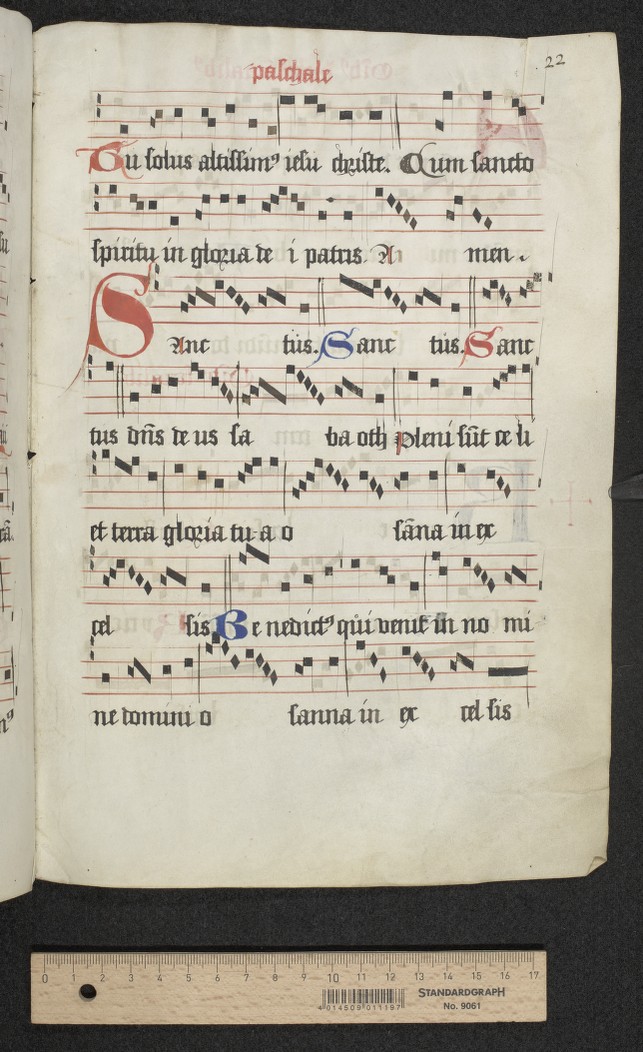 22
paschale
Tu solus altissimꝰ iesu christe. Cum sancto
spiritu in gloria de i patris. A men.
Sanc tus. Sanc tus. Sanc
tus dn̄s de us sa ba oth pleni sūt ce li
et terra gloria tu a o sāna in ex
cel sis Be nedictꝰ qui venit in no mi
ne domini o sanna in ex cel sis
0 1 2 3 4 5 6 7 8 9 10 11 12 13 14 15 16 17
STANDARDGRAPH
4 014509 011197
No. 9061